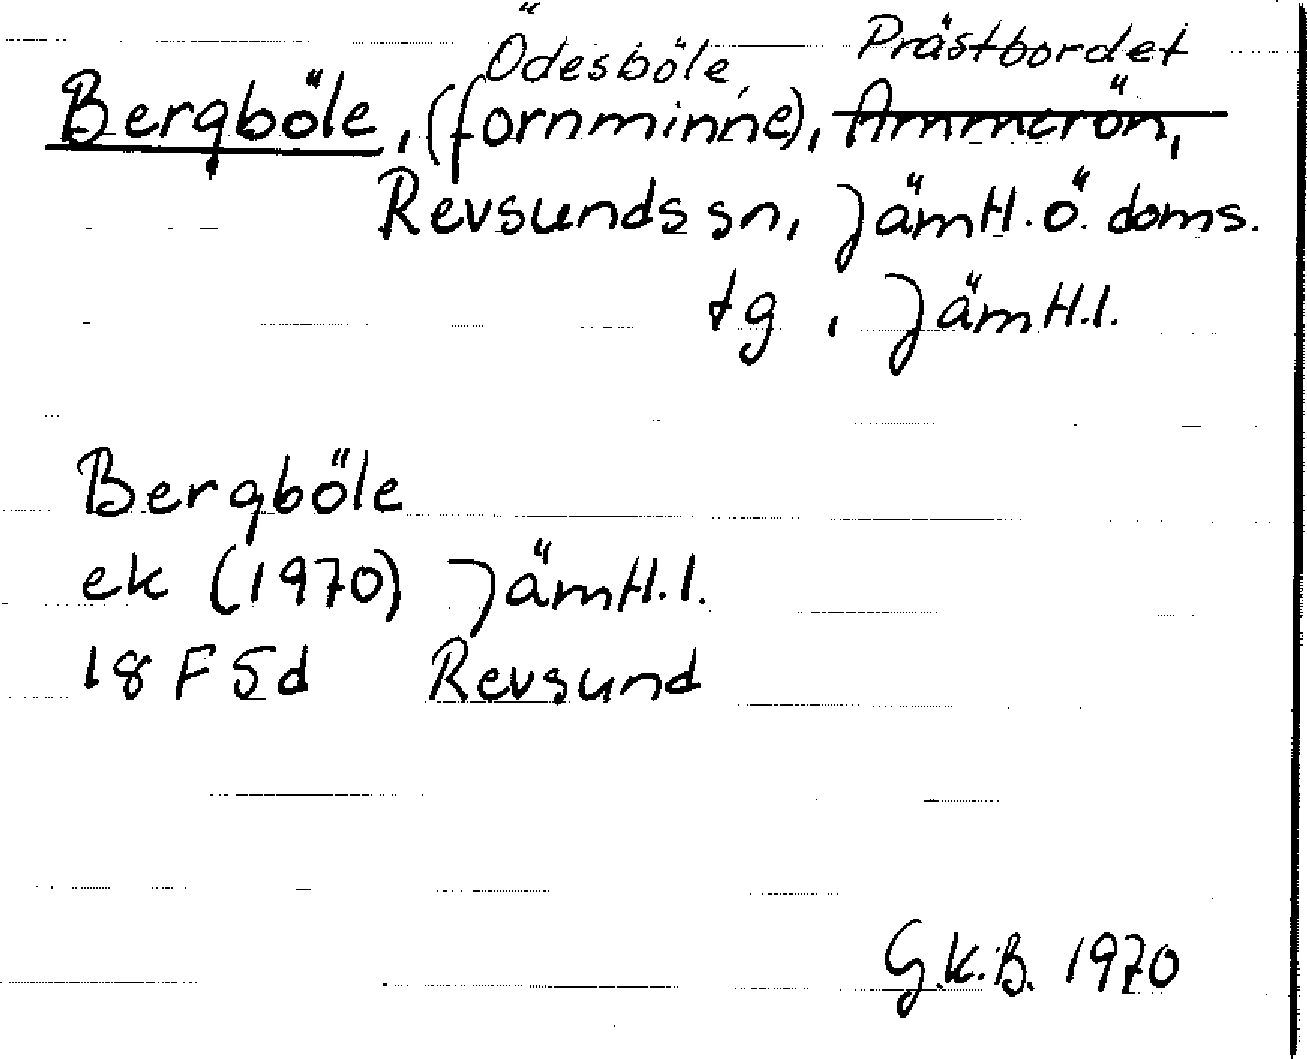 Ödesböle, Prästbordet
Bergböle, (fornminne), Ammerön,
Revsunds sn, Jämtl. ö. doms.
tg, Jämtl. l.
Bergböle
ek (1970) Jämtl. l.
18 F 5d Revsund
G.K.B. 1970